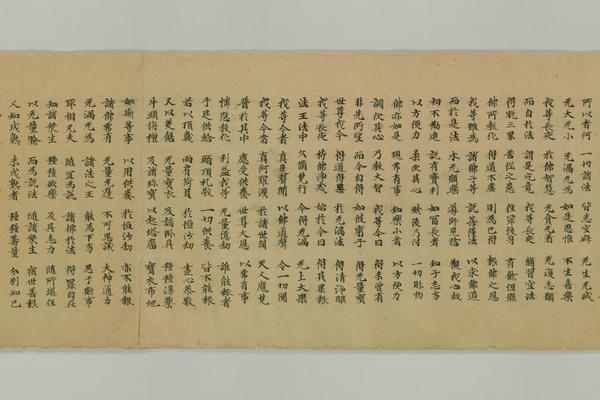 所以者何 一切諸法 皆悉空寂 无生无滅
无大无小 无漏无為 如是思惟 不生喜樂
我等長夜 於佛智慧 无貪无著 无復志願
而自於法 謂是究竟 我等長夜 修習空法
得脫三界 苦惱之患 住最後身 有餘涅槃
佛所教化 得道不虛 則為已得 報佛之恩
我等雖為 諸佛子等 說菩薩法 以求佛道
而於是法 永无願樂 導師見捨 觀我心故
初不勸進 說有實利 如富長者 知子志劣
以方便力 柔伏其心 然後乃付 一切財物
佛亦如是 現希有事 知樂小者 以方便力
調伏其心 乃教大智 我等今日 得未曾有
非先所望 而今自得 如彼窮子 得无量寶
世尊我今 得道得果 於无漏法 得清淨眼
我等長夜 持佛淨戒 始於今日 得其果報
法王法中 久修梵行 今得无漏 无上大果
我等今者 真是聲聞 以佛道聲 令一切聞
我等今者 真阿羅漢 於諸世間 天人魔梵
普於其中 應受供養 世尊大恩 以希有事
憐愍教化 利益我等 无量億劫 誰能報者
手足供給 頭頂礼敬 一切供養 皆不能報
若以頂戴 兩肩荷負 於恒沙劫 盡心恭敬
又以美饍 无量寶衣 及諸臥具 種種湯藥
牛頭栴檀 及諸珍寶 以起塔廟 寶衣布地
如斯等事 以用供養 於恒沙劫 亦不能報
諸佛希有 无量无邊 不可思議 大神通力
无漏无為 諸法之王 能為下劣 忍于斯事
取相凡夫 隨宜為說 諸佛於法 得最自在
知諸衆生 種種欲樂 及其志力 隨所堪任
以无量喻 而為說法 隨諸衆生 宿世善根
又知成熟 未成熟者 種種籌量 分別知已